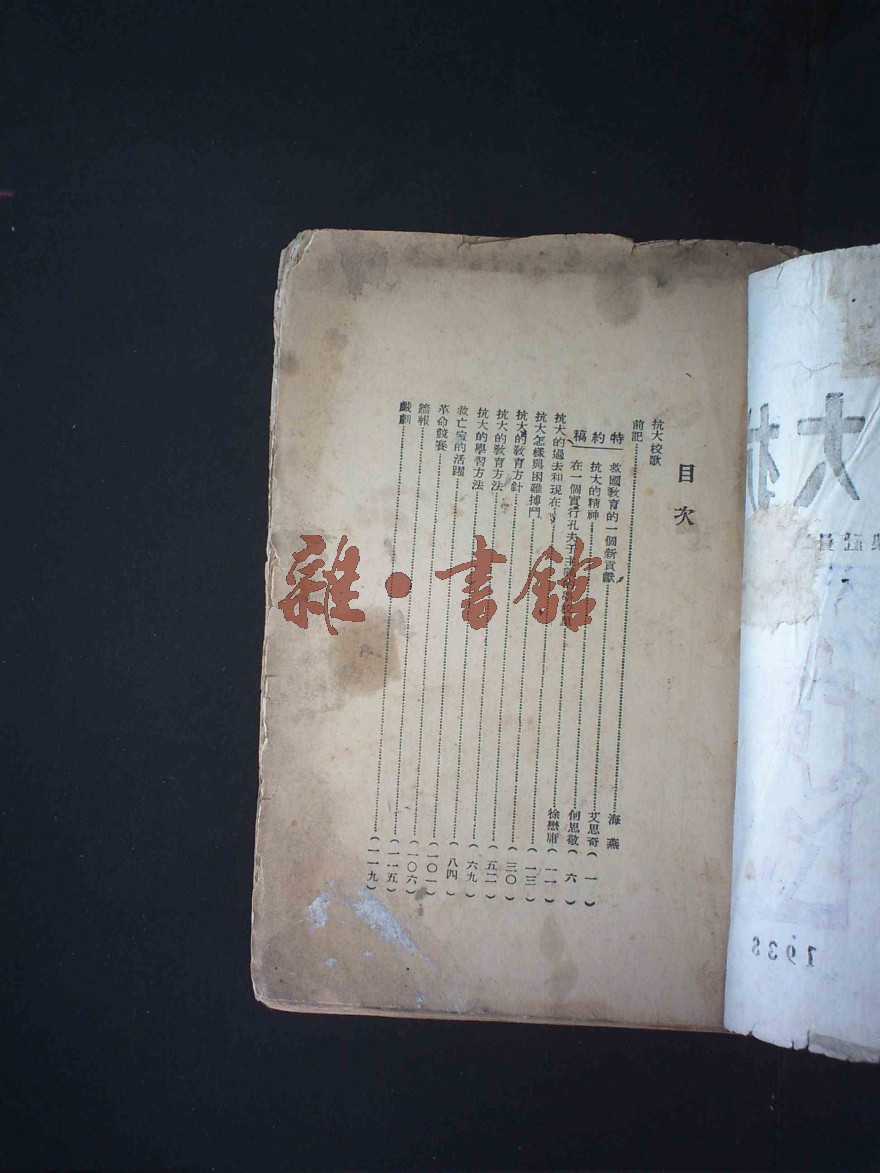 目次
抗大校歌
前記……海燕
特約稿
救國教育的一個新貢獻……艾思奇（一）
抗大的精神……何思敬（六）
在一個實行孔夫子……徐懋庸（一一）
抗大的過去和現在……（一三）
抗大怎樣與困難搏鬥……（三〇）
抗大的教育方針……（五二）
抗大的教育方法……（六九）
抗大的學習方法……（八四）
救亡室的活躍……（一〇一）
革命競賽……（一〇六）
牆報……（一一五）
戲劇……（一一九）
雜·書館
1938